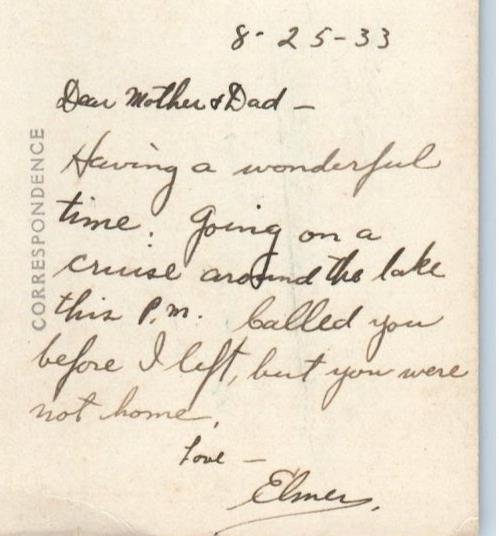 8-25-33
Dear Mother & Dad -
Having a wonderful
time. Going on a
cruise around the lake
this P.M. Called you
before I left, but you were
not home.
Love -
Elmer.
CORRESPONDENCE